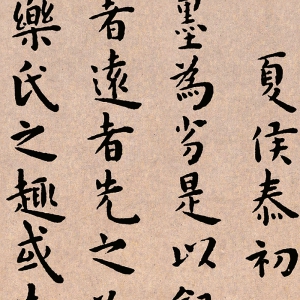 夏侯泰初
墨為劣是以
者遠者先之
樂氏之趣或